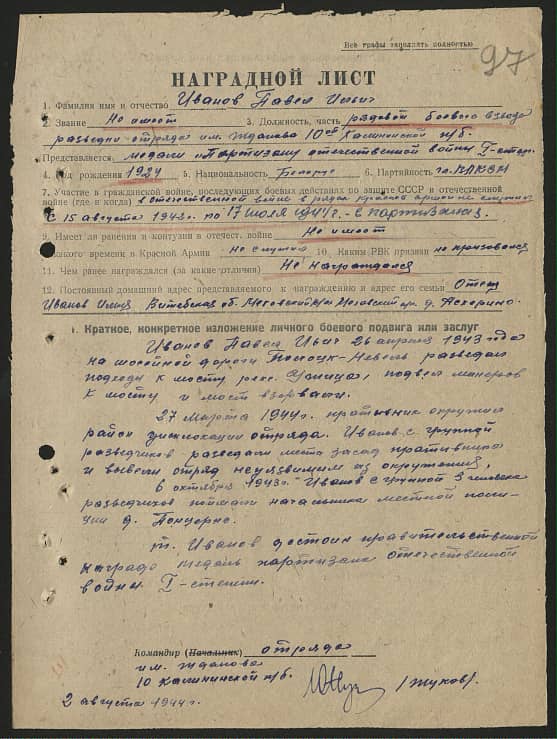 Все графы заполнять полностью
97
НАГРАДНОЙ ЛИСТ
1. Фамилия имя и отчество Иванов Павел Ильич
2. Звание Не имеет 3. Должность, часть рядовой боевого взвода
разведки отряда им. Жданова 10ой Калининской п/б.
Представляется медали „Партизану отечественной войны I-степ.
4. Год рождения 1924 5. Национальность Белорус 6. Партийность чл. ВЛКСМ
7. Участие в гражданской войне, последующих боевых действиях по защите СССР и отечественной
войне (где и когда) в отечественной войне в рядах красной армии не служил
с 15 августа 1943г. по 17 июля 1944г. - в партизанах.
8. Имеет ли ранения и контузии в отечест. войне Не имеет
какого времени в Красной Армии не служил 10. Каким РВК призван не призывался
11. Чем ранее награждался (за какие отличия) Не награждался
12. Постоянный домашний адрес представляемого к награждению и адрес его семьи Отец
Иванов Илья Витебская об. р/н д.
I. Краткое, конкретное изложение личного боевого подвига или заслуг
Иванов Павел Ильич 26 апреля 1943 года
на шоссейной дороге Полоцк-Невель разведал
подходы к мосту реки, подвел минеров
к мосту и мост взорвали.
27 марта 1944г. противник окружил
район дислокации отряда. Иванов с группой
разведчиков разведали места засад противника
и вывели отряд неуязвимым из окружения,
в октябре 1943г. Иванов с группой 3 человека
разведчиков поймали начальника местной поли-
ции д.
т. Иванов достоин правительственной
награды медаль партизана отечественной
войны I-степени.
Командир (Начальник) отряда
им. Жданова
10 Калининской п/б. /Жуков/.
2 августа 1944г.